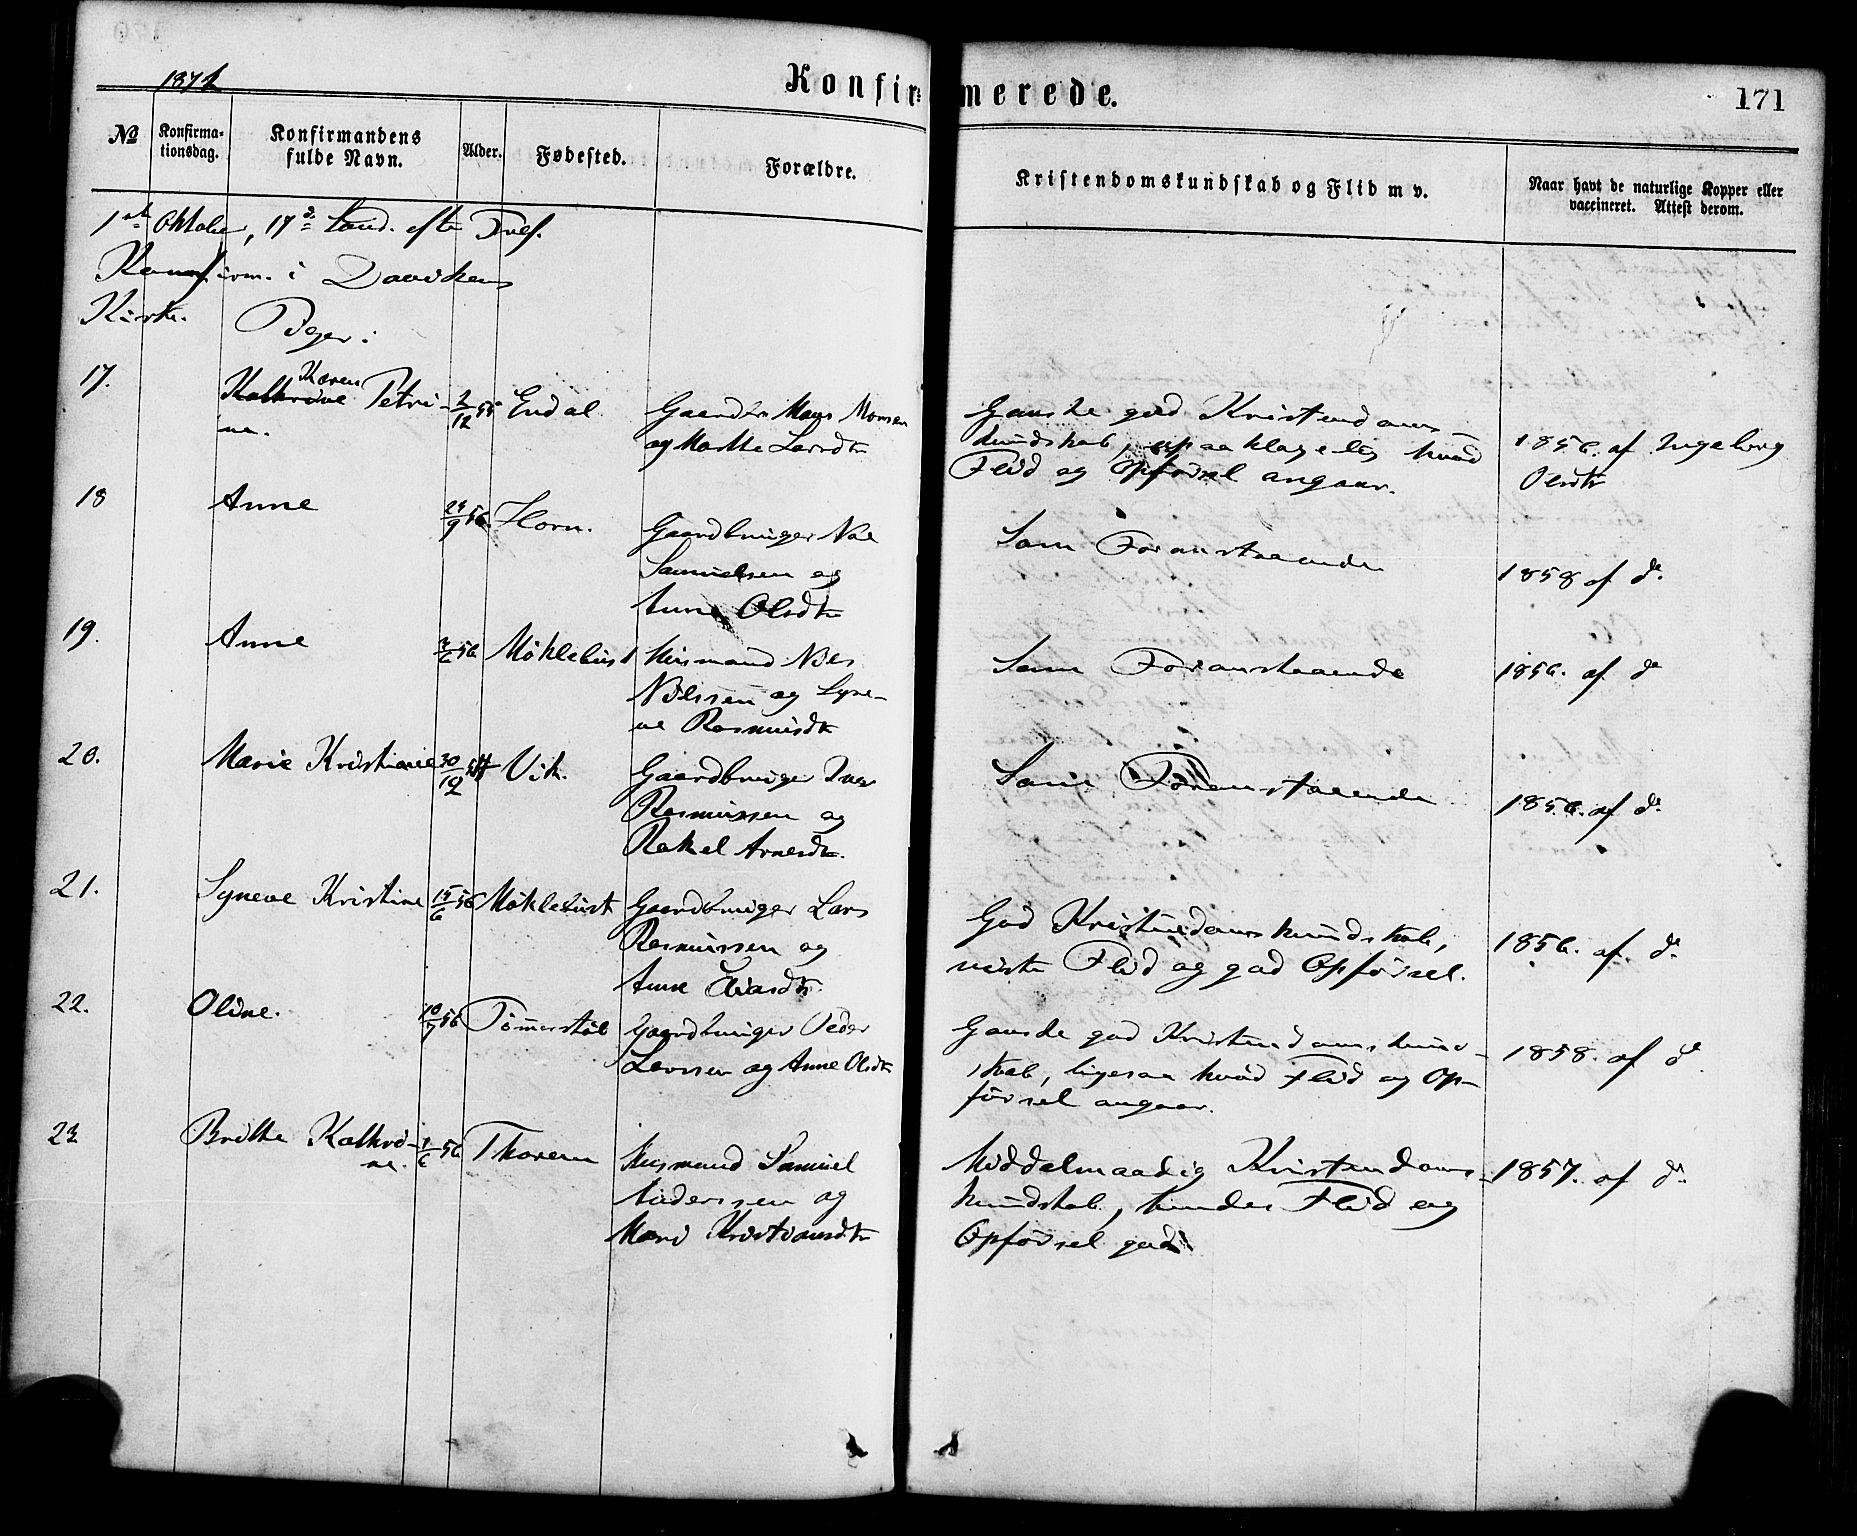 1871
Konfirmerede.
171
No
Konfirma-
tionsdag.
Konfirmandens
fulde Navn.
Alder.
Fødested.
Forældre.
Kristendomskundskab og Flid m v.
Naar havt de naturlige Kopper eller
vaccineret. Attest derom.
1ste Oktober, 17de Sønd. efter Tref.
Konfirm. i Davikens
Kirke.
Piger:
17.
Karen
Kathrine Petri-
ne.
2/12 55
Endal
Gaardbr. Mons Monsen
og Marthe Larsdtr
Ganske god Kristendoms-
kundskab, upaaklagelig hvad
Flid og Opførsel angaar.
1856. af Ingeborg
Olsdtr
18
Anne
24/9 56
Horn.
Gaardbruger Noe
Samuelsen og
Anne Olsdtr
Som Foranstaaende
1858 af do
19.
Anne
3/6 56
Møklebust
Husmand Nils
Nilssen og Syne-
ve Rasmusdtr
Som Foranstaaende
1856. af do
20.
Marie Kristiane
30/12
Vik.
Gaardbruger Iver
Rasmussen og
Rakel Arnesdtr.
Som Foranstaaende
1856. af do
21.
Syneve Kristine
15/6 56
Møklebust
Gaardbruger Lars
Rasmussen og
Anne Eliasdtr.
God Kristendomskundskab,
Flid og god Opførsel.
1856. af. do
22.
Oline.
10/7 56
Tømmerstøl
Gaardbruger Peder
Larssen og Anne Olsdtr
Ganske god Kristendomskund-
skab, ligesaa hvad Flid og Op-
førsel angaar.
1858. af do
23
Brithe Kathri-
ne.
1/6 56
Thoreim
Husmand Samuel
Anderssen og
Mari Kristiansdtr
Middelmaadig Kristendoms-
kundskab, Flid og
Opførsel god
1857. af do